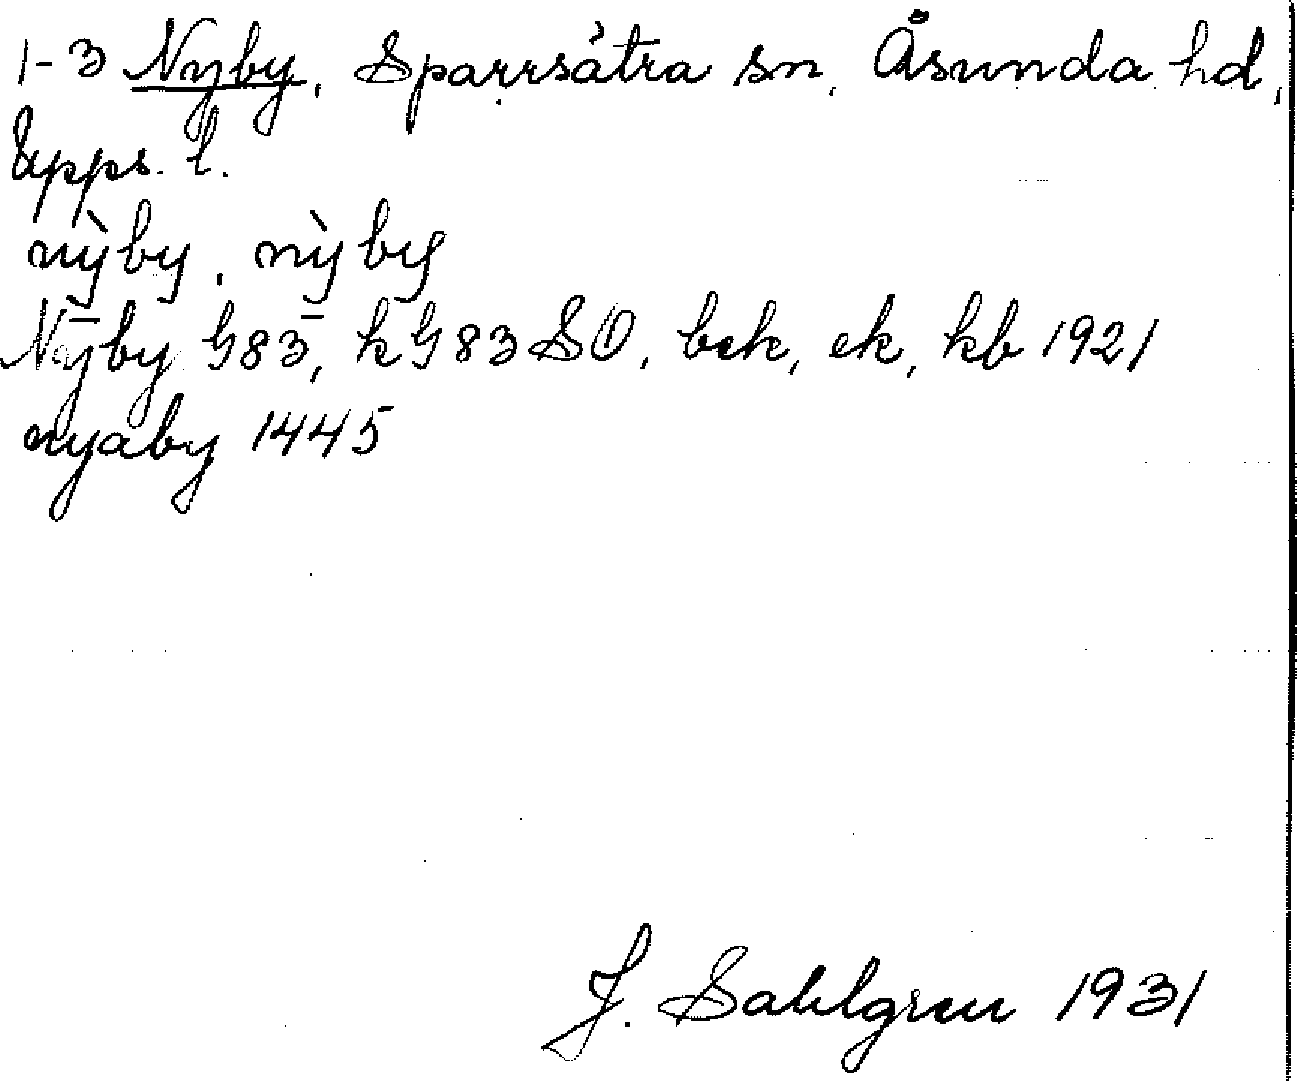 1-3 Nyby, Sparrsåtra sn, Åsunda hd,
Upps. l.
nỳby, nỳby
Nyby G83, k G83 SO, bek, ek, kb 1921
nyaby 1445
J. Sahlgren 1931